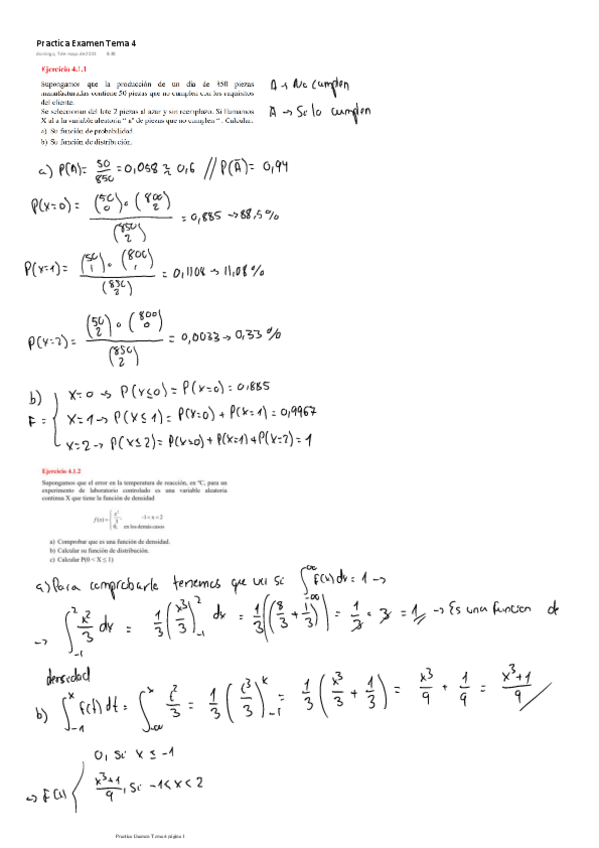 Practica Examen Tema 4
Ejercicio 4.1.1
Supongamos que la producción de un día de 850 piezas
manufacturadas contiene 50 piezas que no cumplen con los requisitos
del cliente.
Se seleccionan del lote 2 piezas al azar y sin reemplazo. Si llamamos
X al a la variable aleatoria " nº de piezas que no cumplen ". Calcular:
a) Su función de probabilidad.
b) Su función de distribución.
A → No cumplen
A → Si lo cumplen
a) P(A) = 50/850 = 0,058 ≈ 0,6 // P(Ā) = 0,94
P(X=0) = (50 0) · (800 2) / (850 2) = 0,885 → 88,5 %
P(X=1) = (50 1) · (800 1) / (850 2) = 0,1108 → 11,08 %
P(X=2) = (50 2) · (800 0) / (850 2) = 0,0033 → 0,33 %
b) F = { X=0 → P(X≤0) = P(X=0) = 0,885
X=1 → P(X≤1) = P(X=0) + P(X=1) = 0,9967
X=2 → P(X≤2) = P(X=0) + P(X=1) + P(X=2) = 1
Ejercicio 4.1.2
Supongamos que el error en la temperatura de reacción, en ºC, para un
experimento de laboratorio controlado es una variable aleatoria
continua X que tiene la función de densidad
f(x) = { x²/3, -1 < x < 2
0, en los demás casos
a) Comprobar que es una función de densidad.
b) Calcular su función de distribución.
c) Calcular P(0 < X ≤ 1)
a) Para comprobarlo tenemos que ver si ∫ -∞ ∞ f(x) dx = 1 →
→ ∫ -1 2 x²/3 dx = 1/3 (x³/3) 2 -1 dx = 1/3 (8/3 + 1/3) = 1/3 · 3 = 1 → Es una funcion de
densidad
b) ∫ -1 x f(t) dt = ∫ -∞ x t²/3 = 1/3 (t³/3) x -1 = 1/3 (x³/3 + 1/3) = x³/9 + 1/9 = x³+1/9
→ F(x) { 0, si x ≤ -1
x³+1/9, si -1 < x < 2
Practica Examen Tema 4 página 1